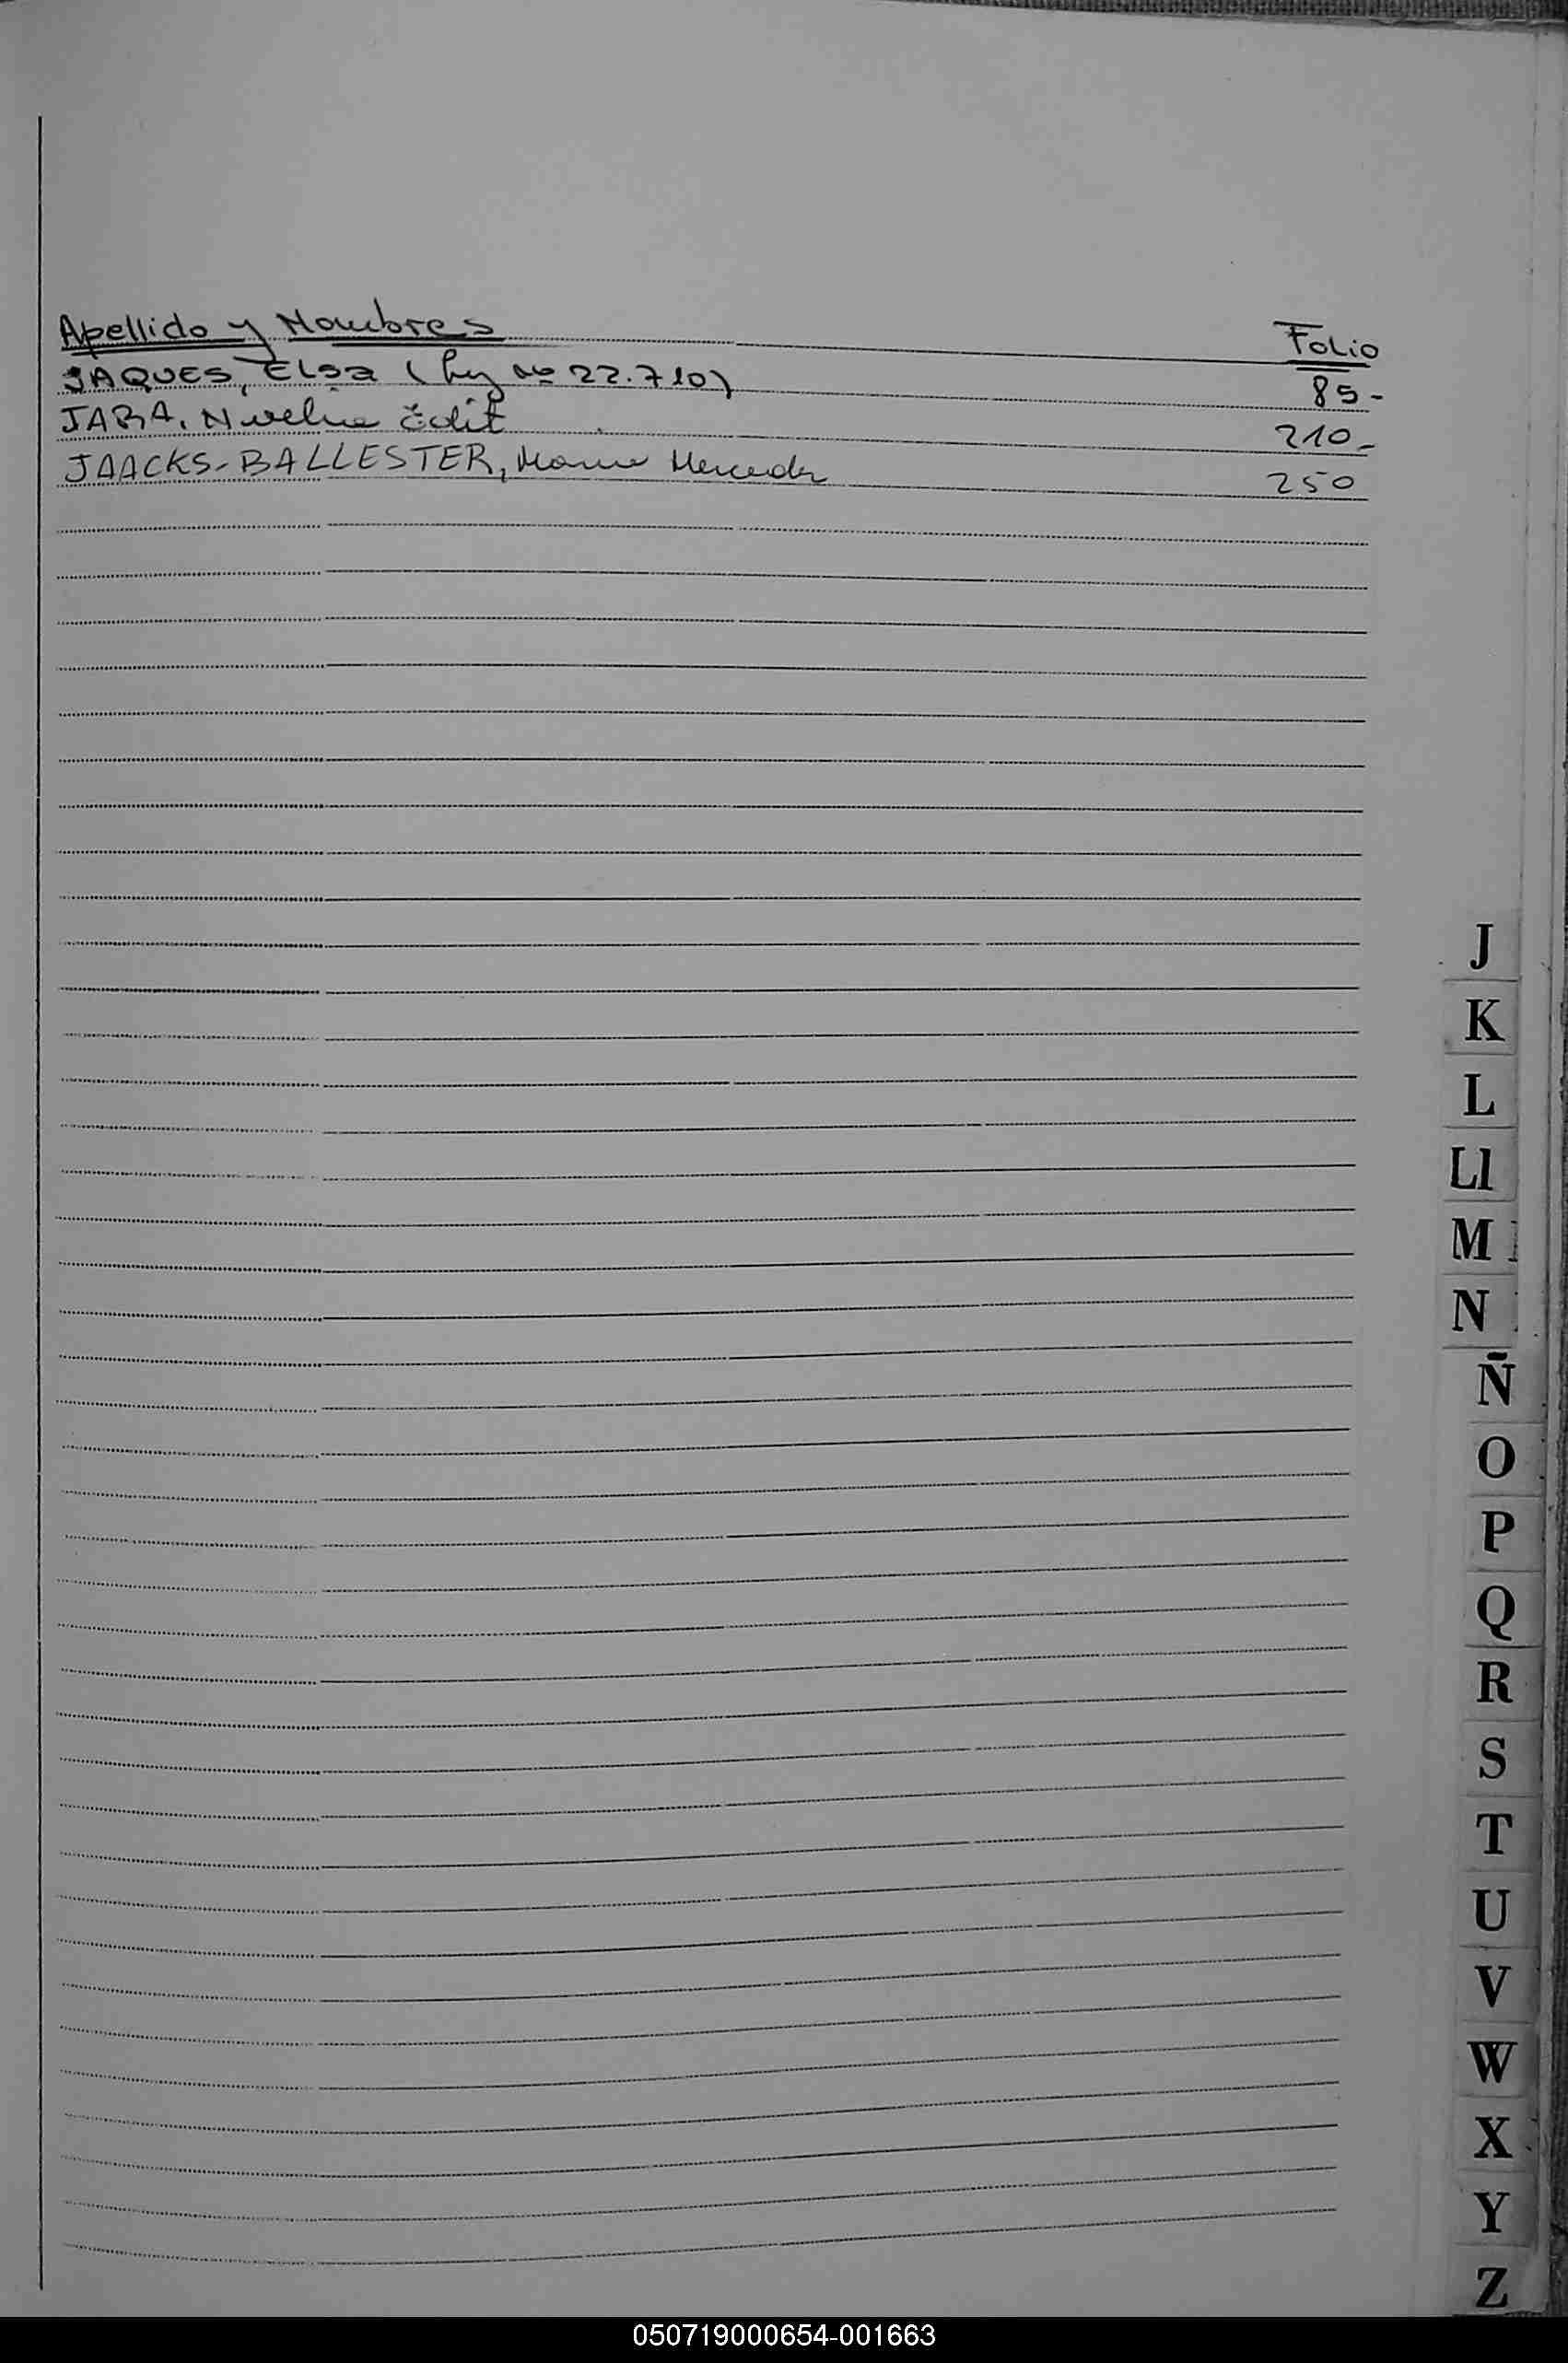 Apellido y Nombres Folio
JAQUES, Elsa (Ley nº 22.710) 85-
JARA, Edit 210-
JAACKS-BALLESTER, María Mercedes 250
J
K
L
Ll
M
N
Ñ
O
P
Q
R
S
T
U
V
W
X
Y
Z
050719000654-001663